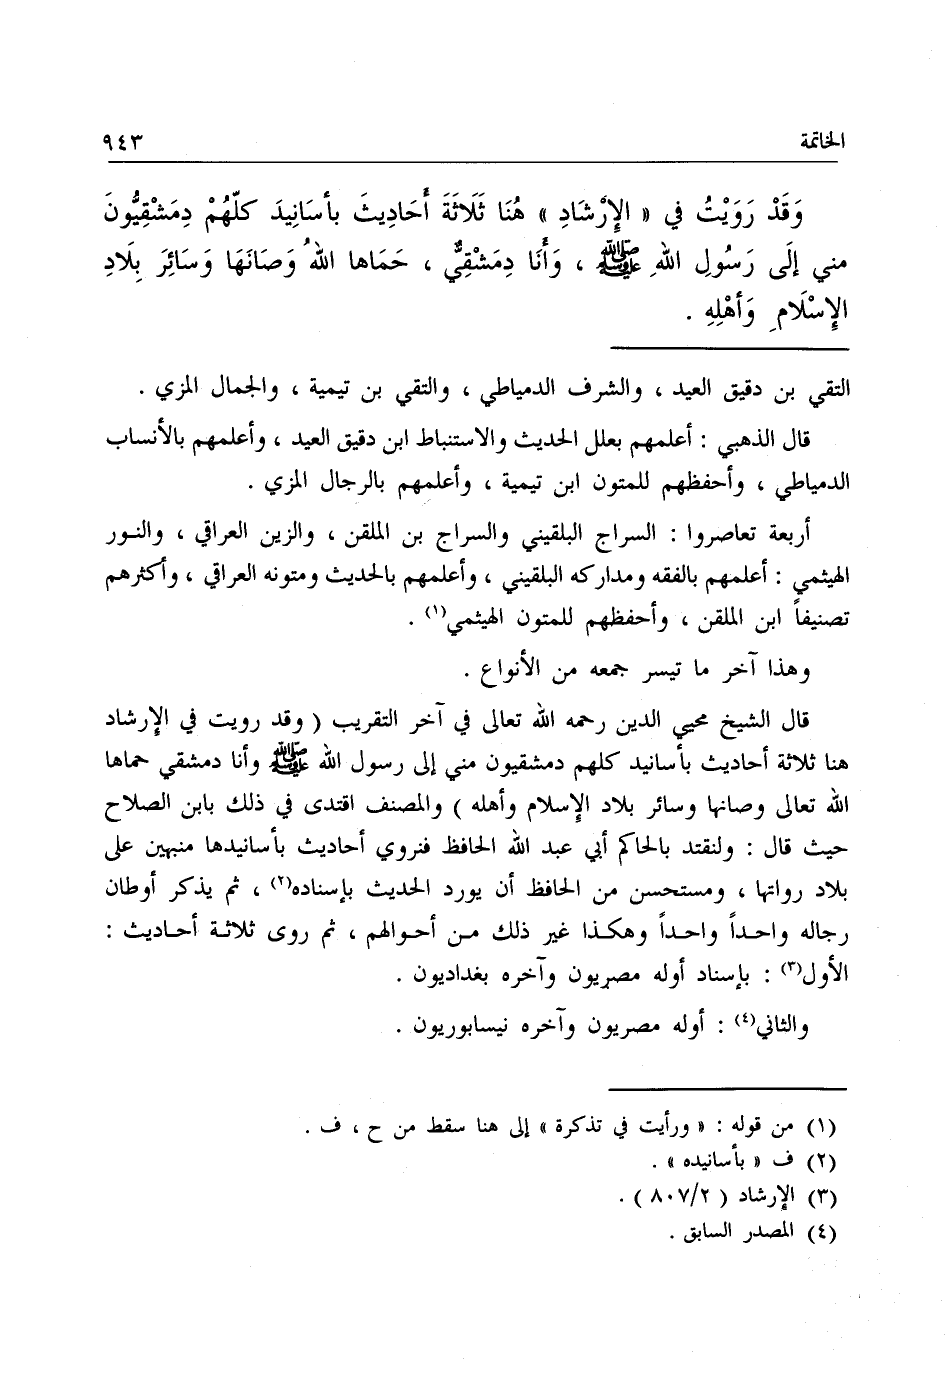 الخاتمة ٩٤٣
وَقَدْ رَوَيْتُ في « الإِرْشَادِ » هُنَا ثَلَاثَةَ أَحَادِيثَ بأسَانِيدَ كلّهُمْ دِمَشْقِيُّونَ
مني إلَى رَسُولِ اللهِ ﷺ ، وَأَنَا دِمَشْقِيٌّ ، حَمَاها اللهُ وَصَانَهَا وَسَائِرَ بِلَادِ
الإِسْلَامِ وَأهْلِهِ .
التقي بن دقيق العيد ، والشرف الدمياطي ، والتقي بن تيمية ، والجمال المزي .
قال الذهبي : أعلمهم بعلل الحديث والاستنباط ابن دقيق العيد ، وأعلمهم بالأنساب
الدمياطي ، وأحفظهم للمتون ابن تيمية ، وأعلمهم بالرجال المزي .
أربعة تعاصروا : السراج البلقيني والسراج بن الملقن ، والزين العراقي ، والنور
الهيثمي : أعلمهم بالفقه ومداركه البلقيني ، وأعلمهم بالحديث ومتونه العراقي ، وأكثرهم
تصنيفاً ابن الملقن ، وأحفظهم للمتون الهيثمي(١) .
وهذا آخر ما تيسر جمعه من الأنواع .
قال الشيخ محيي الدين رحمه الله تعالى في آخر التقريب ( وقد رويت في الإرشاد
هنا ثلاثة أحاديث بأسانيد كلهم دمشقيون مني إلى رسول الله ﷺ وأنا دمشقي حماها
الله تعالى وصانها وسائر بلاد الإسلام وأهله ) والمصنف اقتدى في ذلك بابن الصلاح
حيث قال : ولنقتد بالحاكم أبي عبد الله الحافظ فنروي أحاديث بأسانيدها منبهين على
بلاد رواتها ، ومستحسن من الحافظ أن يورد الحديث بإسناده(٢) ، ثم يذكر أوطان
رجاله واحداً واحداً وهكذا غير ذلك من أحوالهم ، ثم روى ثلاثة أحاديث :
الأول(٣) : بإسناد أوله مصريون وآخره بغداديون .
والثاني(٤) : أوله مصريون وآخره نيسابوريون .
(١) من قوله : « ورأيت في تذكرة » إلى هنا سقط من ح ، ف .
(٢) ف « بأسانيده » .
(٣) الإرشاد ( ٨٠٧/٢ ) .
(٤) المصدر السابق .